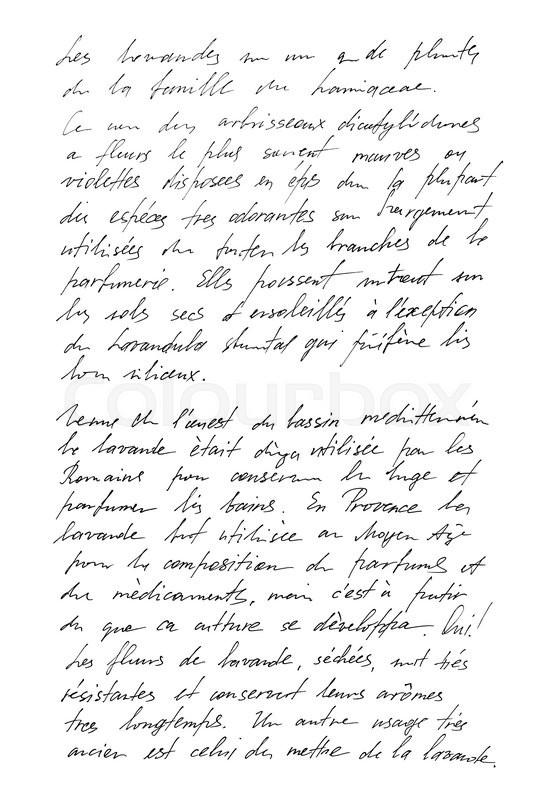 Les lavandes de plantes
de la famille du Lamiaceae.
Ce arbrisseaux dicotylédones
a fleurs le plus souvent mauves ou
violettes disposées en épis la plupart
des espèces tres odorantes sont largement
utilisées toutes les branches de la
parfumerie. Elles poussent surtout sur
les sols secs et ensoleillés à l'exception
du Lavandula qui préfère les
siliceux.
colourbox
Venue de l'ouest du bassin
la lavande ètait utilisée par les
Romains pour conserver le linge et
parfumer les bains. En Provence la
lavande fut utilisée au Moyen Age
pour la composition de parfums et
du mèdicaments, mais c'est à partir
du que ca culture se dèveloppa. Oui!
Les fleurs de lavande, séchées, sont trés
résistantes et conservent leurs arômes
tres longtemps. Un autre usage trés
ancien est celui de mettre de la lavande.